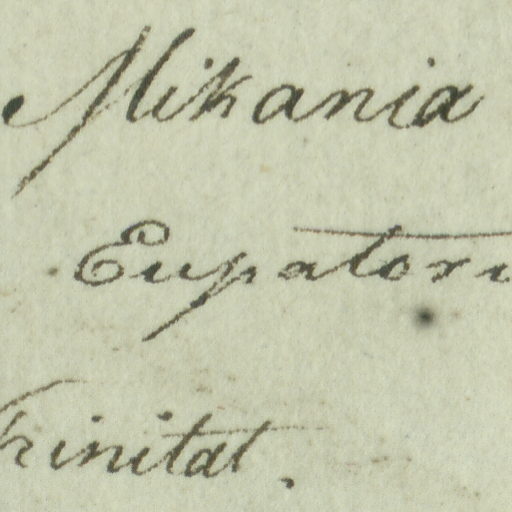 Mikania
Eupatori
Trinitat.